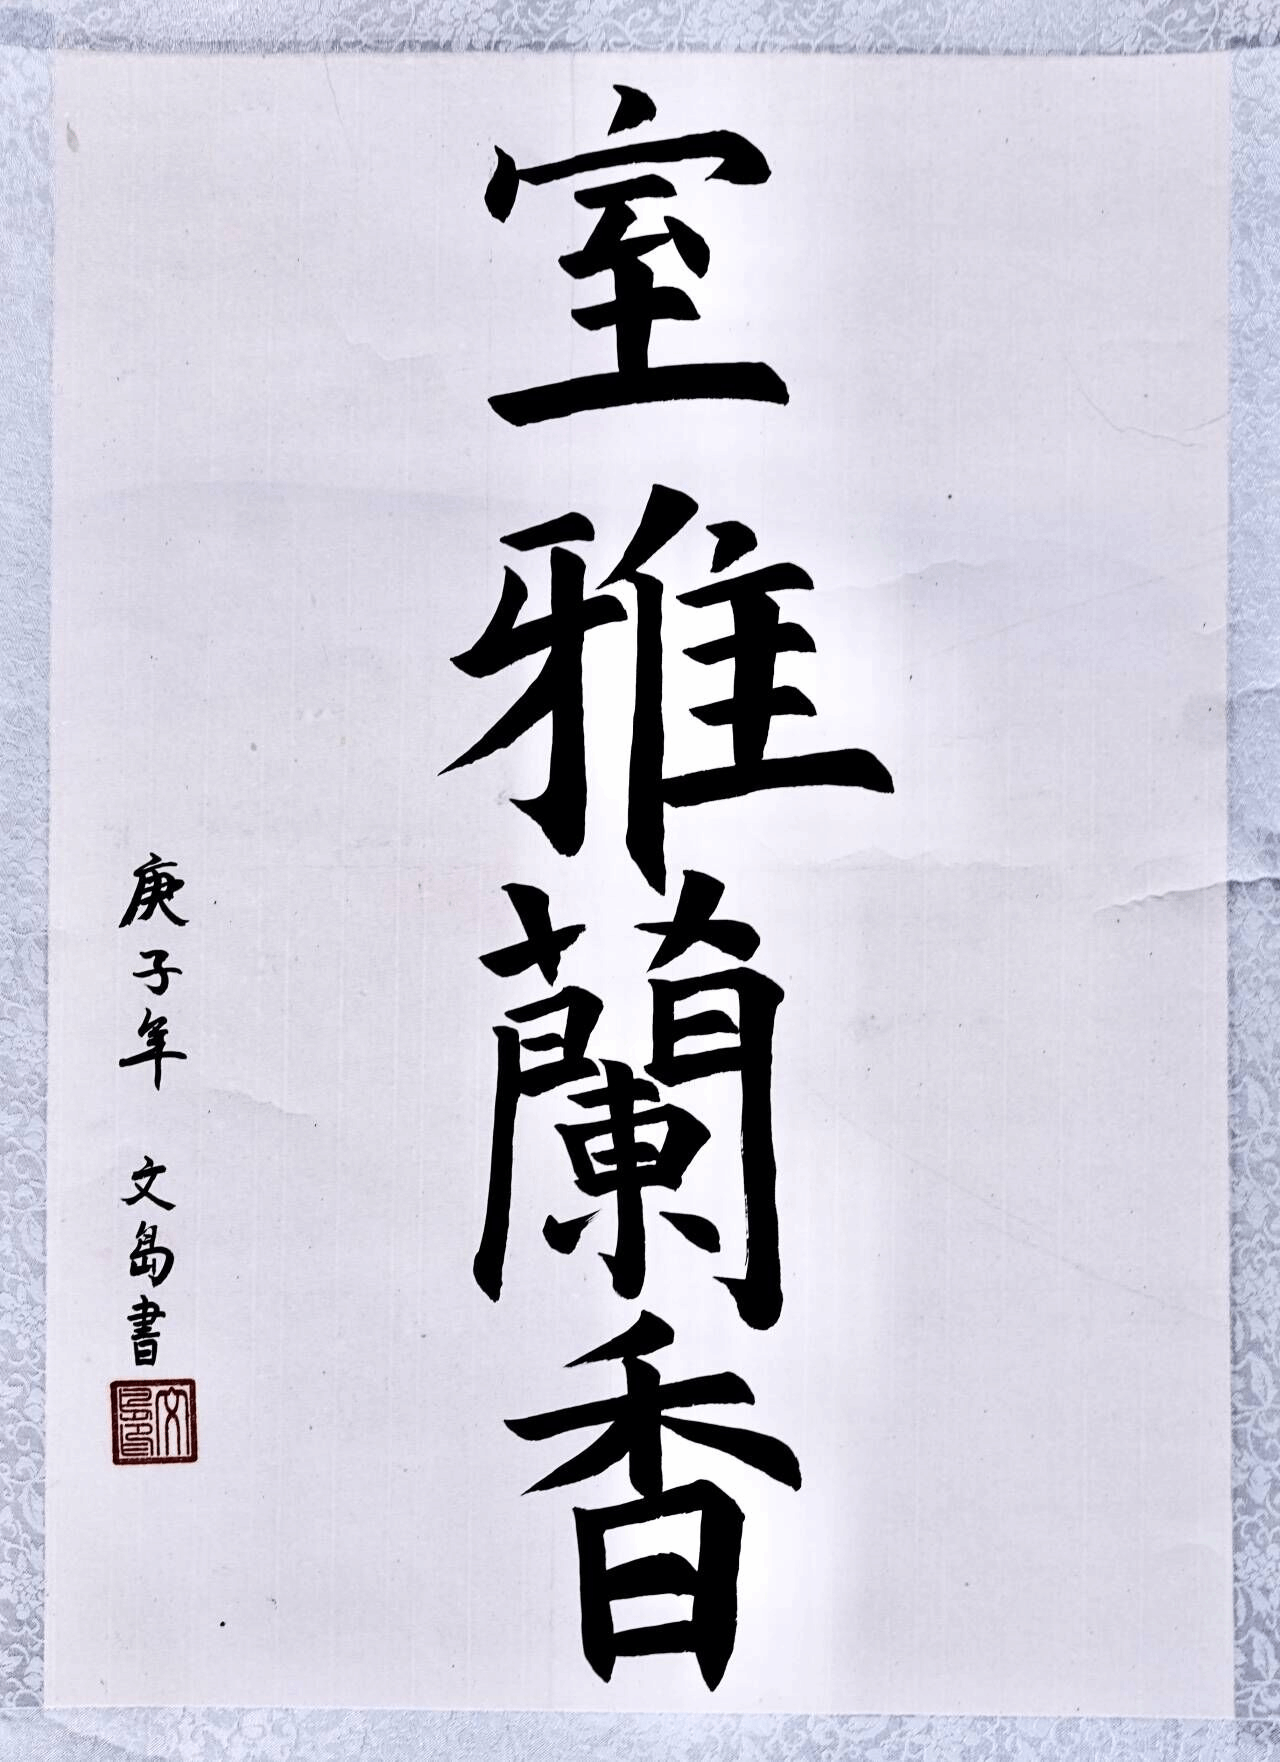 室雅蘭香
庚子年 文島書